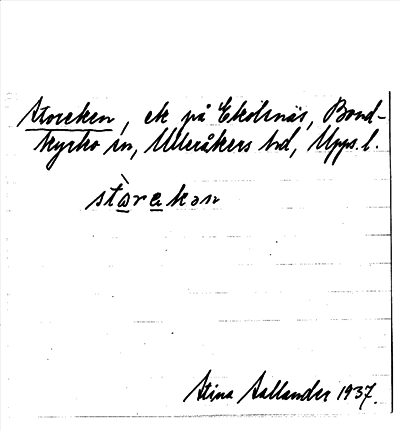 Storeken, ek på Ekolnäs, Bond-
kyrko sn, Ulleråkers hd, Upps. l.
stòrekən
Stina Sallander 1937.